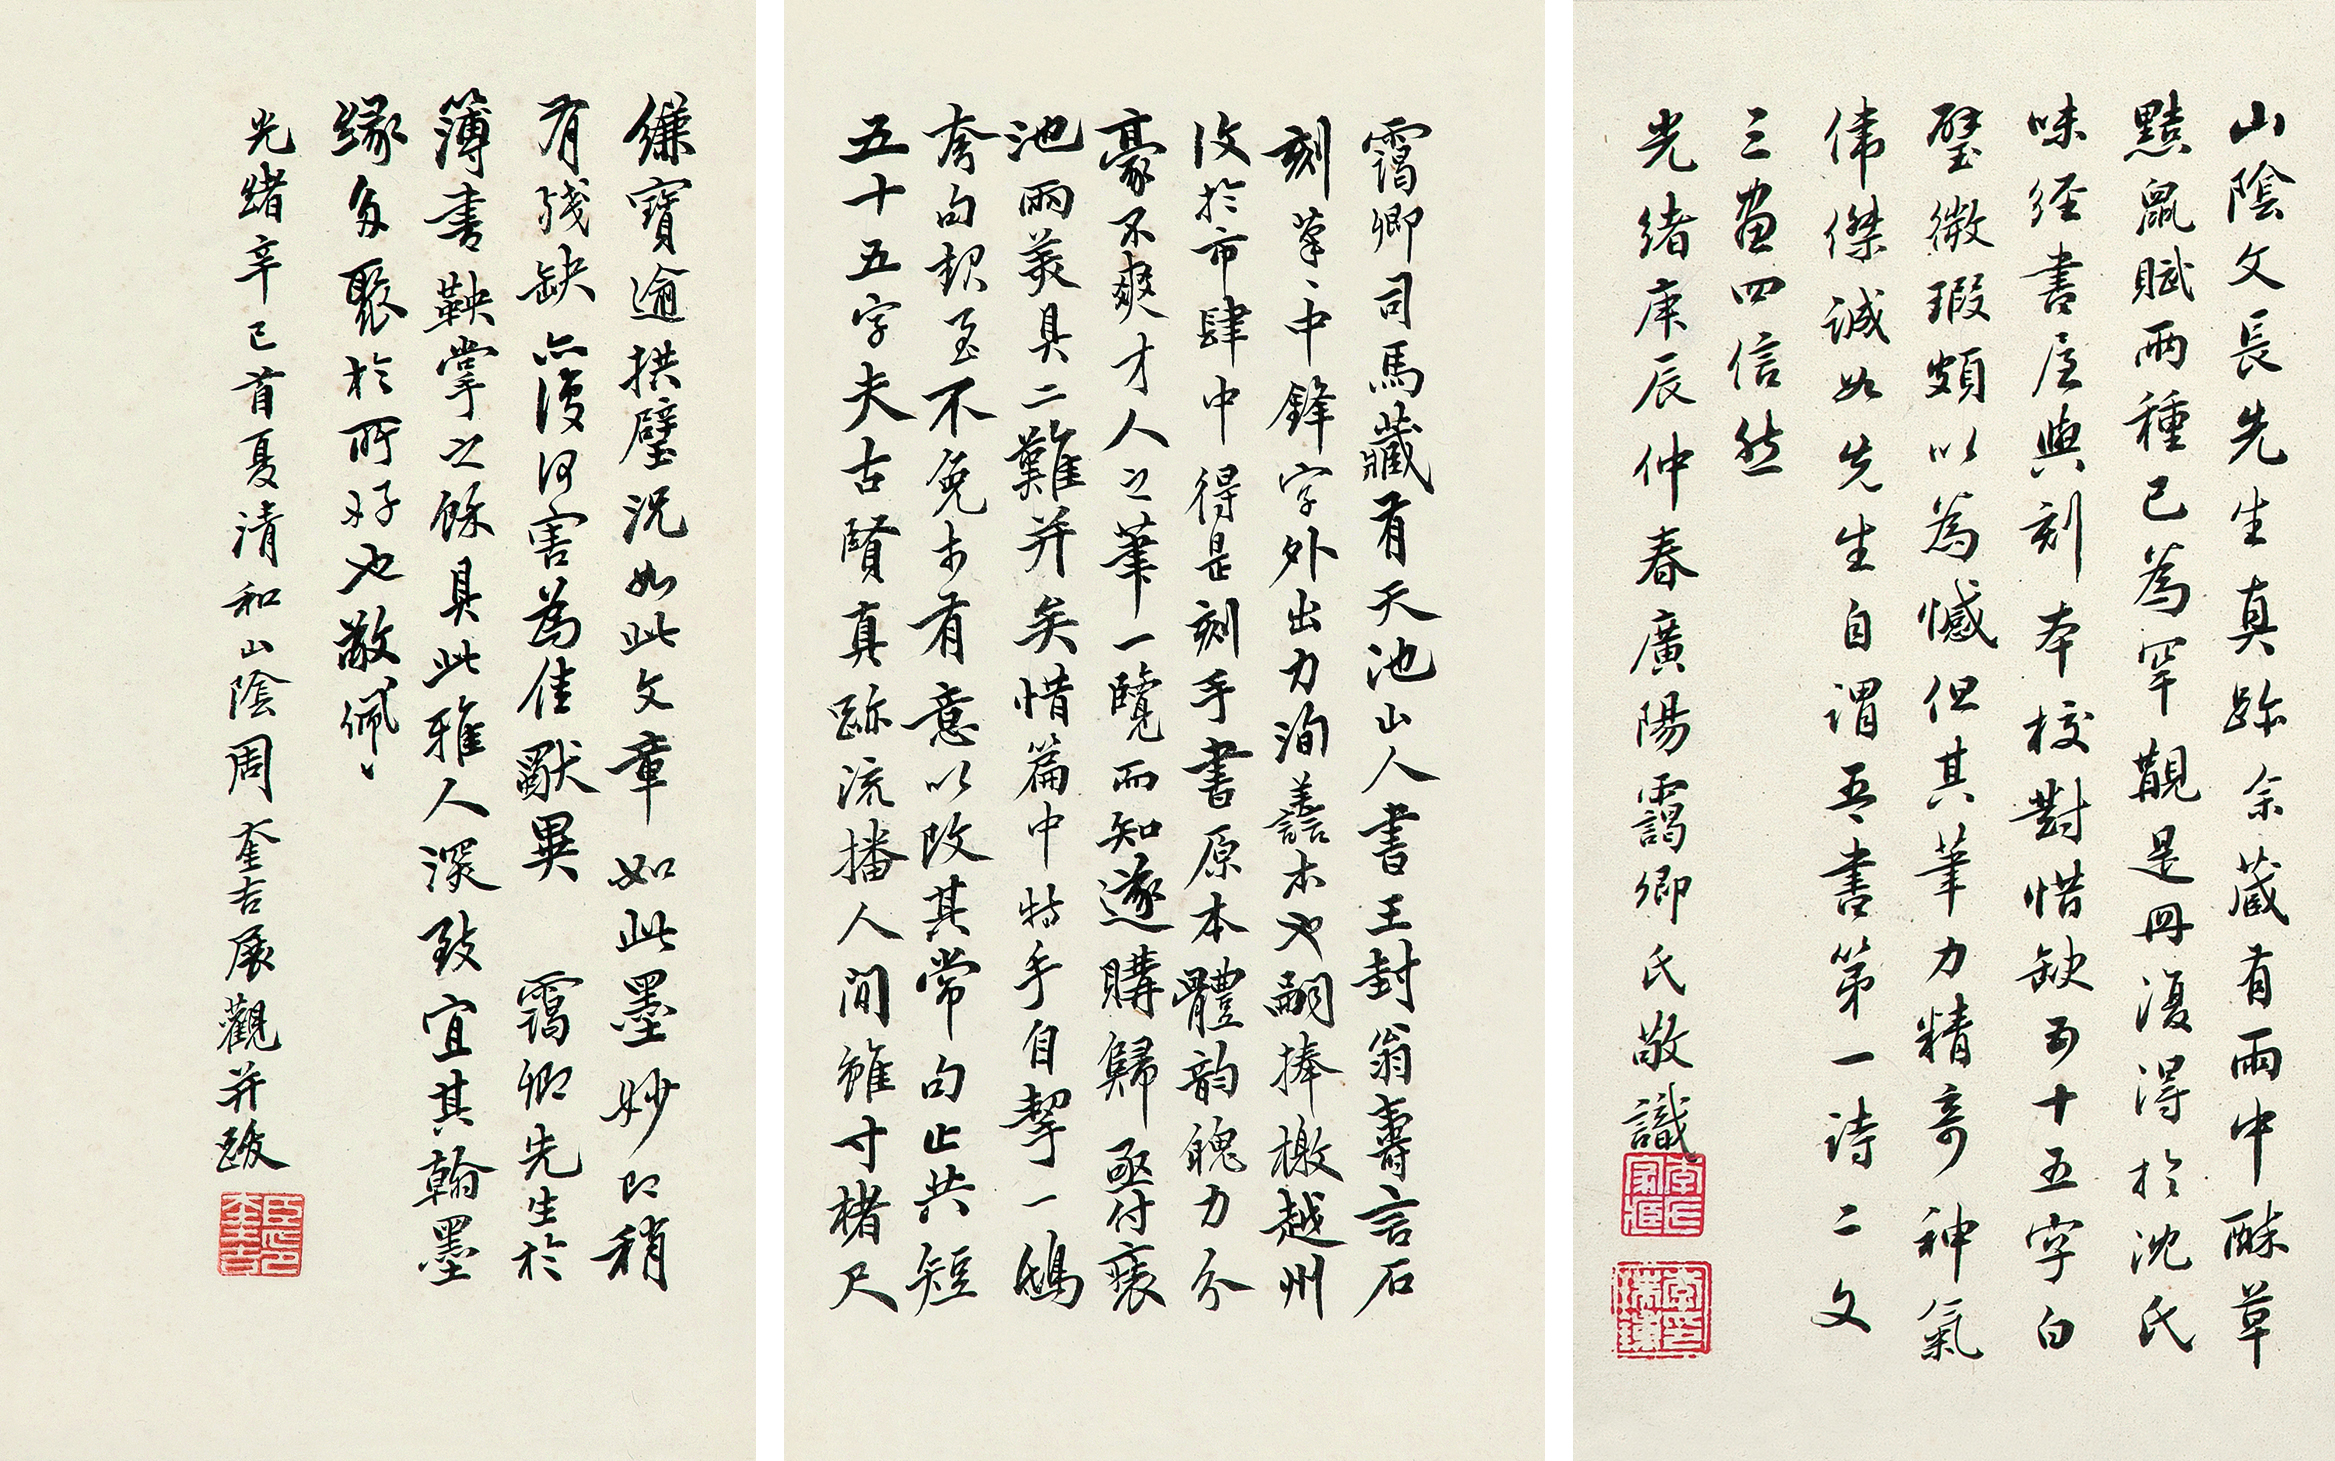 山陰文長先生真跡余藏有雨中醉草
黠鼠賦兩種已為罕覯是冊復得於沈氏
味經書屋與刻本校對惜缺五十五字白
璧微瑕頗以為憾但其筆力精奇神氣
偉傑誠如先生自謂吾書第一詩二文
三畫四信然
光緒庚辰仲春廣陽靄卿氏敬識
靄卿司馬藏有天池山人書王封翁壽言石
刻筆筆中鋒字外出力洵善本也嗣捧檄越州
收於市肆中得是刻手書原本體韵魄力分
豪不爽才人之筆一覽而知遂購歸亟付裝
池兩美具二難并矣惜篇中特手自挈一鴟
夸句起至不免未有意以改其常句止共短
五十五字夫古賢真跡流播人間雖寸楮尺
縑寶逾拱璧況如此文章如此墨妙即稍
有殘缺亦復何害為佳猷異 靄卿先生於
簿書鞅掌之餘具此雅人深致宜其翰墨
緣多聚於所好也敬佩敬佩
光緒辛巳首夏清和山陰周奎吉展觀并跋